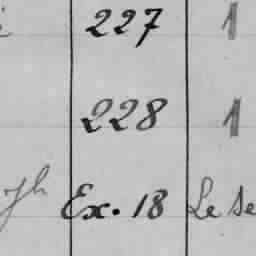 227 1
228 1
Ex. 18 Le se